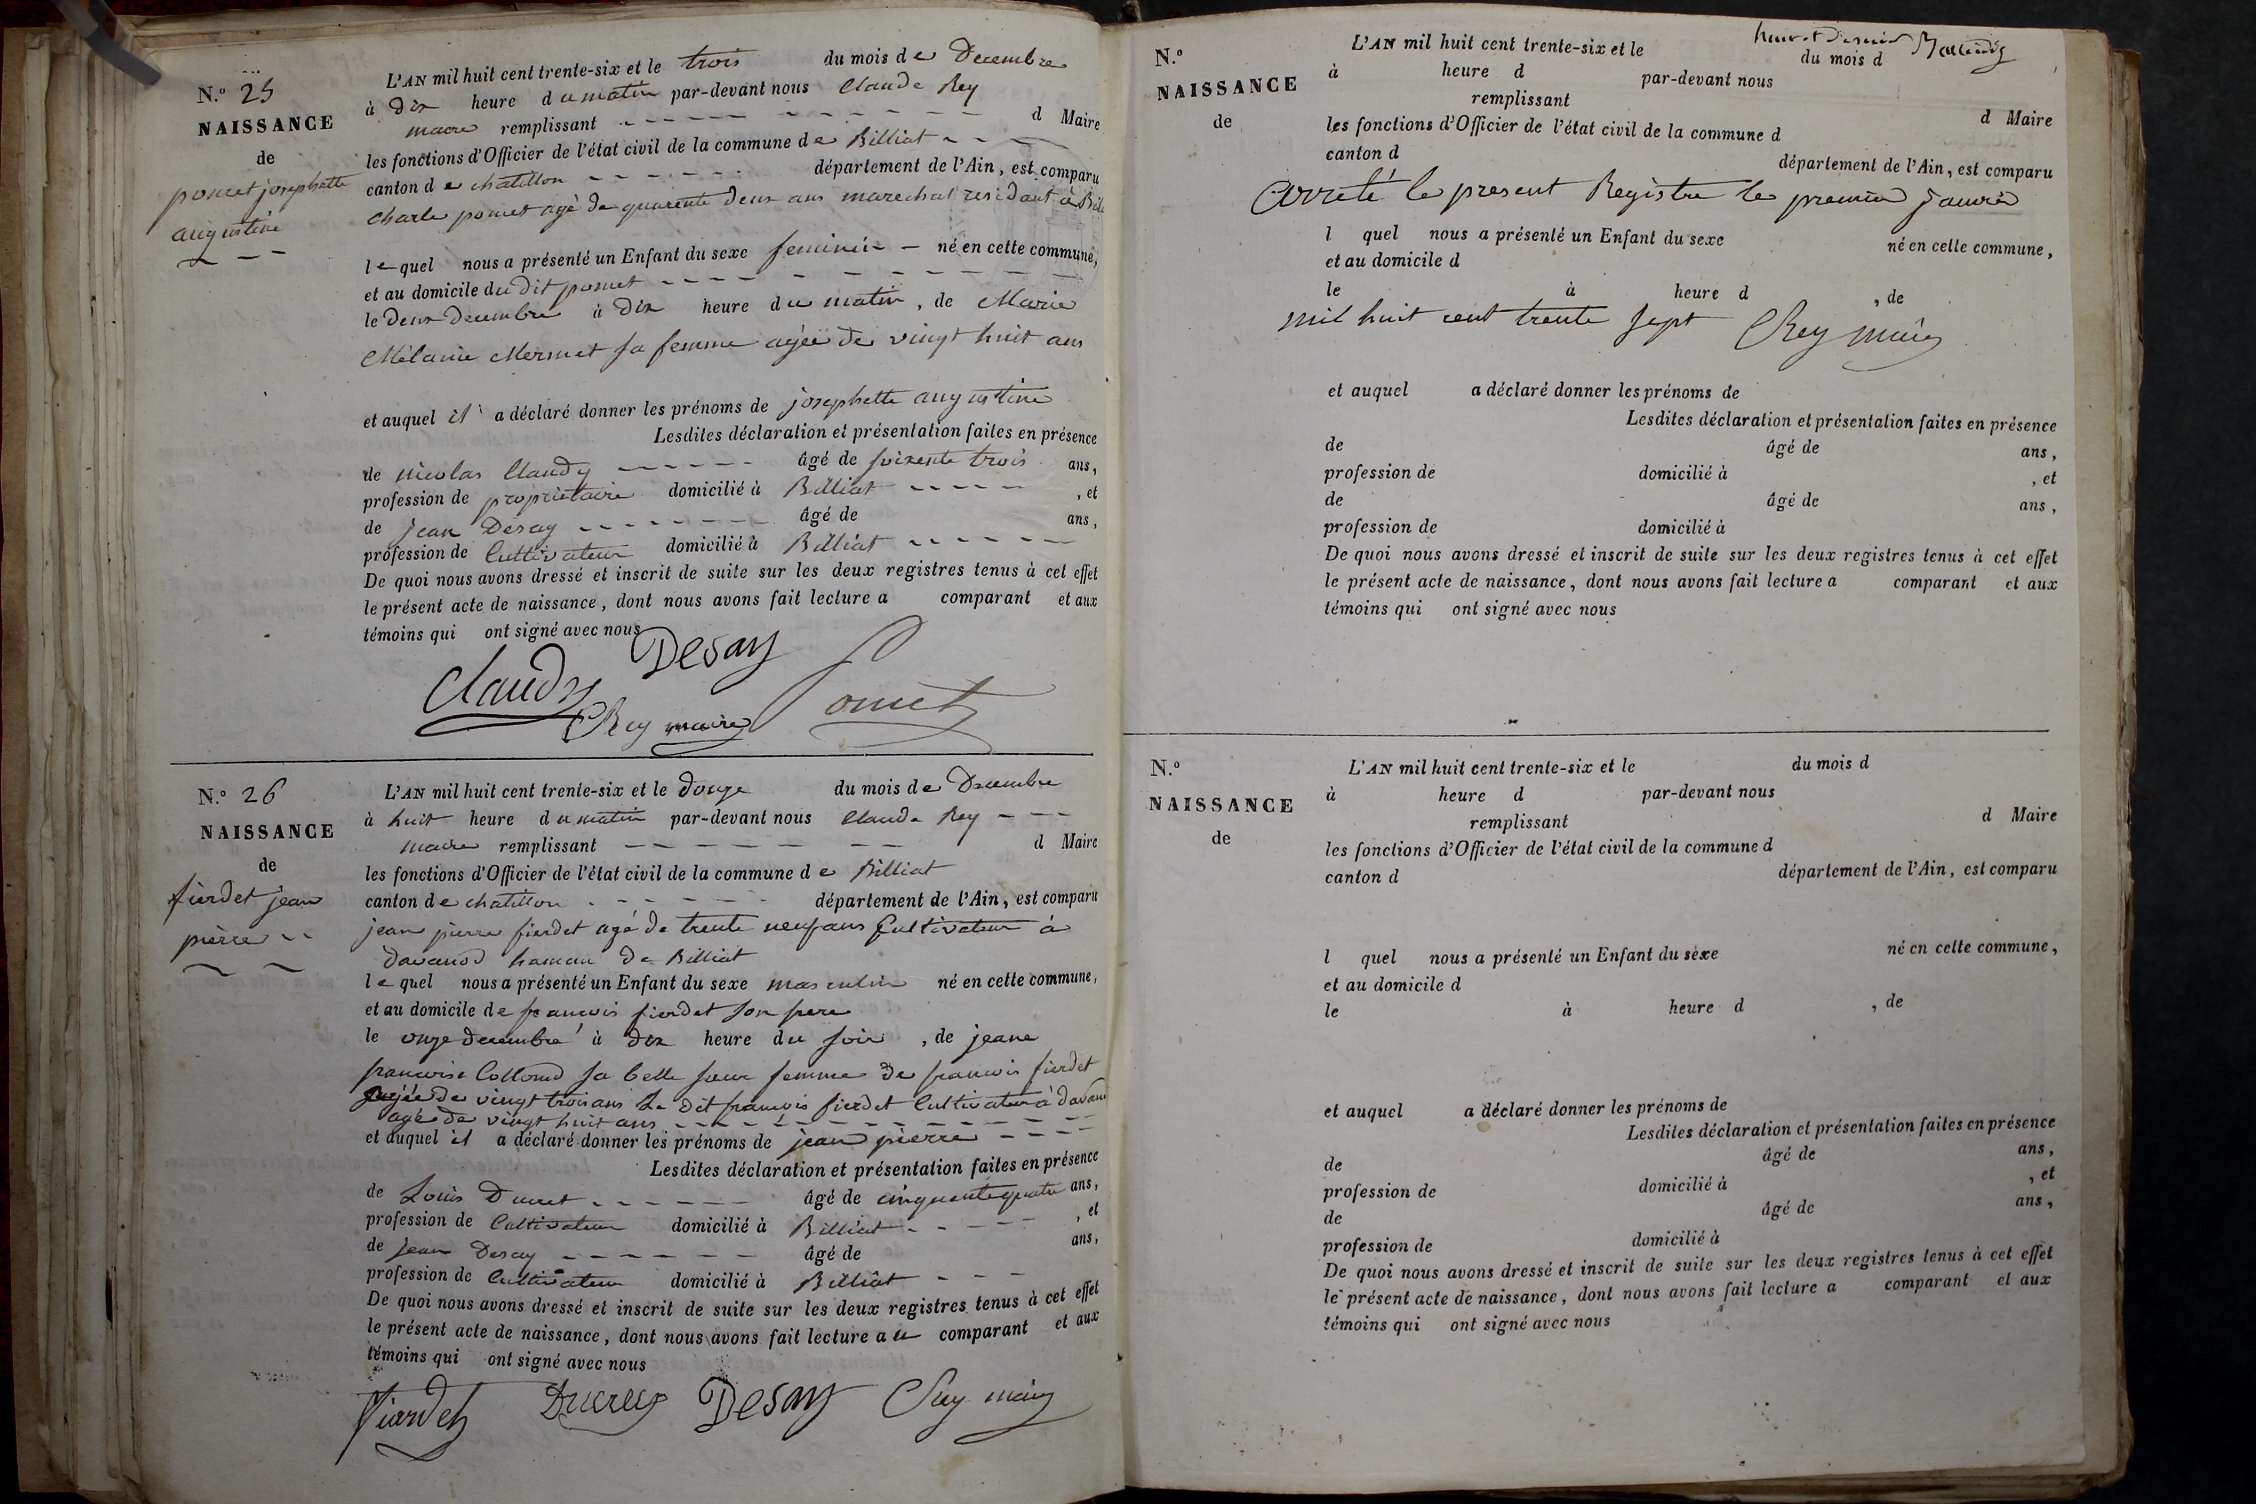 N.° 25
NAISSANCE
de
poncet josephette
augustine
L'AN mil huit cent trente-six et le trois du mois de Decembre
à dix heure du matin par-devant nous Claude Rey
maire remplissant d Maire
les fonctions d'Officier de l'état civil de la commune de Billiat
canton de chatillon département de l'Ain, est comparu
Charle poncet agé de quarente deux ans marechal residant à Bill
lequel nous a présenté un Enfant du sexe feminin né en cette commune,
et au domicile du dit poncet
le deux decembre à dix heure du matin, de Marie
Mélanie Mermet sa femme agée de vingt huit ans
et auquel il a déclaré donner les prénoms de josephette augustine
Lesdites déclaration et présentation faites en présence
de nicolas Claudy âgé de soixente trois ans,
profession de proprietaire domicilié à Billiat, et
de jean Desay âgé de ans,
profession de Cultivateur domicilié à Billiat
De quoi nous avons dressé et inscrit de suite sur les deux registres tenus à cet effet
le présent acte de naissance, dont nous avons fait lecture a comparant et aux
témoins qui ont signé avec nous
Desay
Claudy Poncet
Rey maire
N.° 26
NAISSANCE
de
fierdet jean
pierre
L'AN mil huit cent trente-six et le douze du mois de Decembre
à huit heure du matin par-devant nous Claude Rey
maire remplissant d Maire
les fonctions d'Officier de l'état civil de la commune de Billiat
canton de chatillon département de l'Ain, est comparu
jean pierre fierdet agé de trente neuf ans Cultivateur à
davanod hamau de Billiat
lequel nous a présenté un Enfant du sexe masculin né en cette commune,
et au domicile de francois fierdet son frere
le onze decembre à dix heure du soir, de jeane
francoise Collomd sa belle sœur femme de francois fierdet
agée de vingt trois ans Le dit francois fierdet Cultivateur à davan
agé de vingt huit ans
et auquel il a déclaré donner les prénoms de jean pierre
Lesdites déclaration et présentation faites en présence
de Louis Ducret âgé de cinquante quatre ans,
profession de Cultivateur domicilié à Billiat, et
de jean Desay âgé de ans,
profession de Cultivateur domicilié à Billiat
De quoi nous avons dressé et inscrit de suite sur les deux registres tenus à cet effet
le présent acte de naissance, dont nous avons fait lecture au comparant et aux
témoins qui ont signé avec nous
fierdet Ducret Desay Rey maire
N.°
NAISSANCE
de
L'AN mil huit cent trente-six et le du mois d
à heure d par-devant nous
remplissant d Maire
les fonctions d'Officier de l'état civil de la commune d
canton d département de l'Ain, est comparu
Arreté le present Registre le premier janvier
l quel nous a présenté un Enfant du sexe né en cette commune,
et au domicile d
le à heure d, de
mil huit cent trente sept Rey maire
et auquel a déclaré donner les prénoms de
Lesdites déclaration et présentation faites en présence
de âgé de ans,
profession de domicilié à, et
de âgé de ans,
profession de domicilié à
De quoi nous avons dressé et inscrit de suite sur les deux registres tenus à cet effet
le présent acte de naissance, dont nous avons fait lecture a comparant et aux
témoins qui ont signé avec nous
N.°
NAISSANCE
de
L'AN mil huit cent trente-six et le du mois d
à heure d par-devant nous
remplissant d Maire
les fonctions d'Officier de l'état civil de la commune d
canton d département de l'Ain, est comparu
l quel nous a présenté un Enfant du sexe né en cette commune,
et au domicile d
le à heure d, de
et auquel a déclaré donner les prénoms de
Lesdites déclaration et présentation faites en présence
de âgé de ans,
profession de domicilié à, et
de âgé de ans,
profession de domicilié à
De quoi nous avons dressé et inscrit de suite sur les deux registres tenus à cet effet
le présent acte de naissance, dont nous avons fait lecture a comparant et aux
témoins qui ont signé avec nous